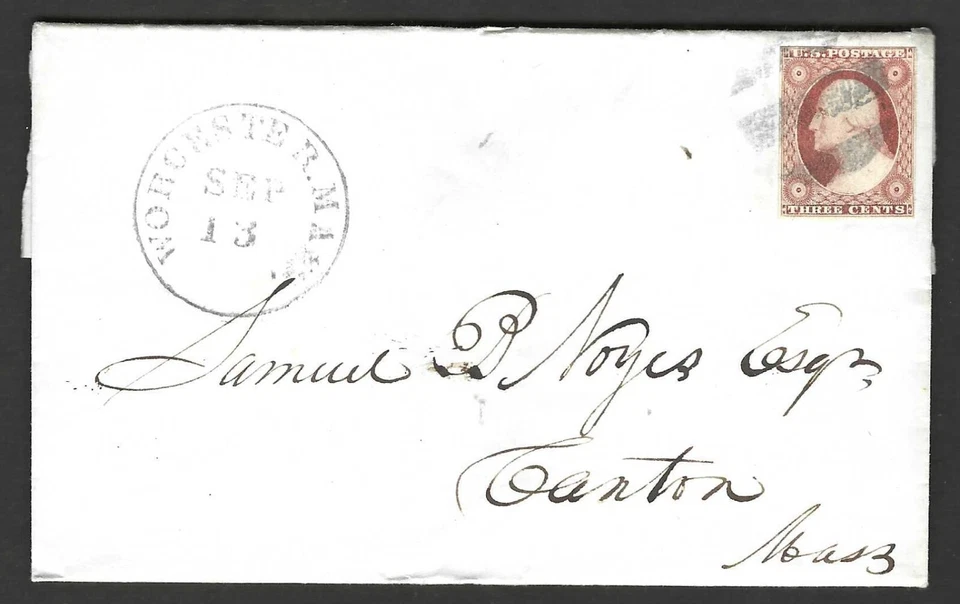 U.S. POSTAGE
THREE CENTS
WORCESTER. MAS
SEP
13
Samuel B Noyes Esqr,
Canton
Mass